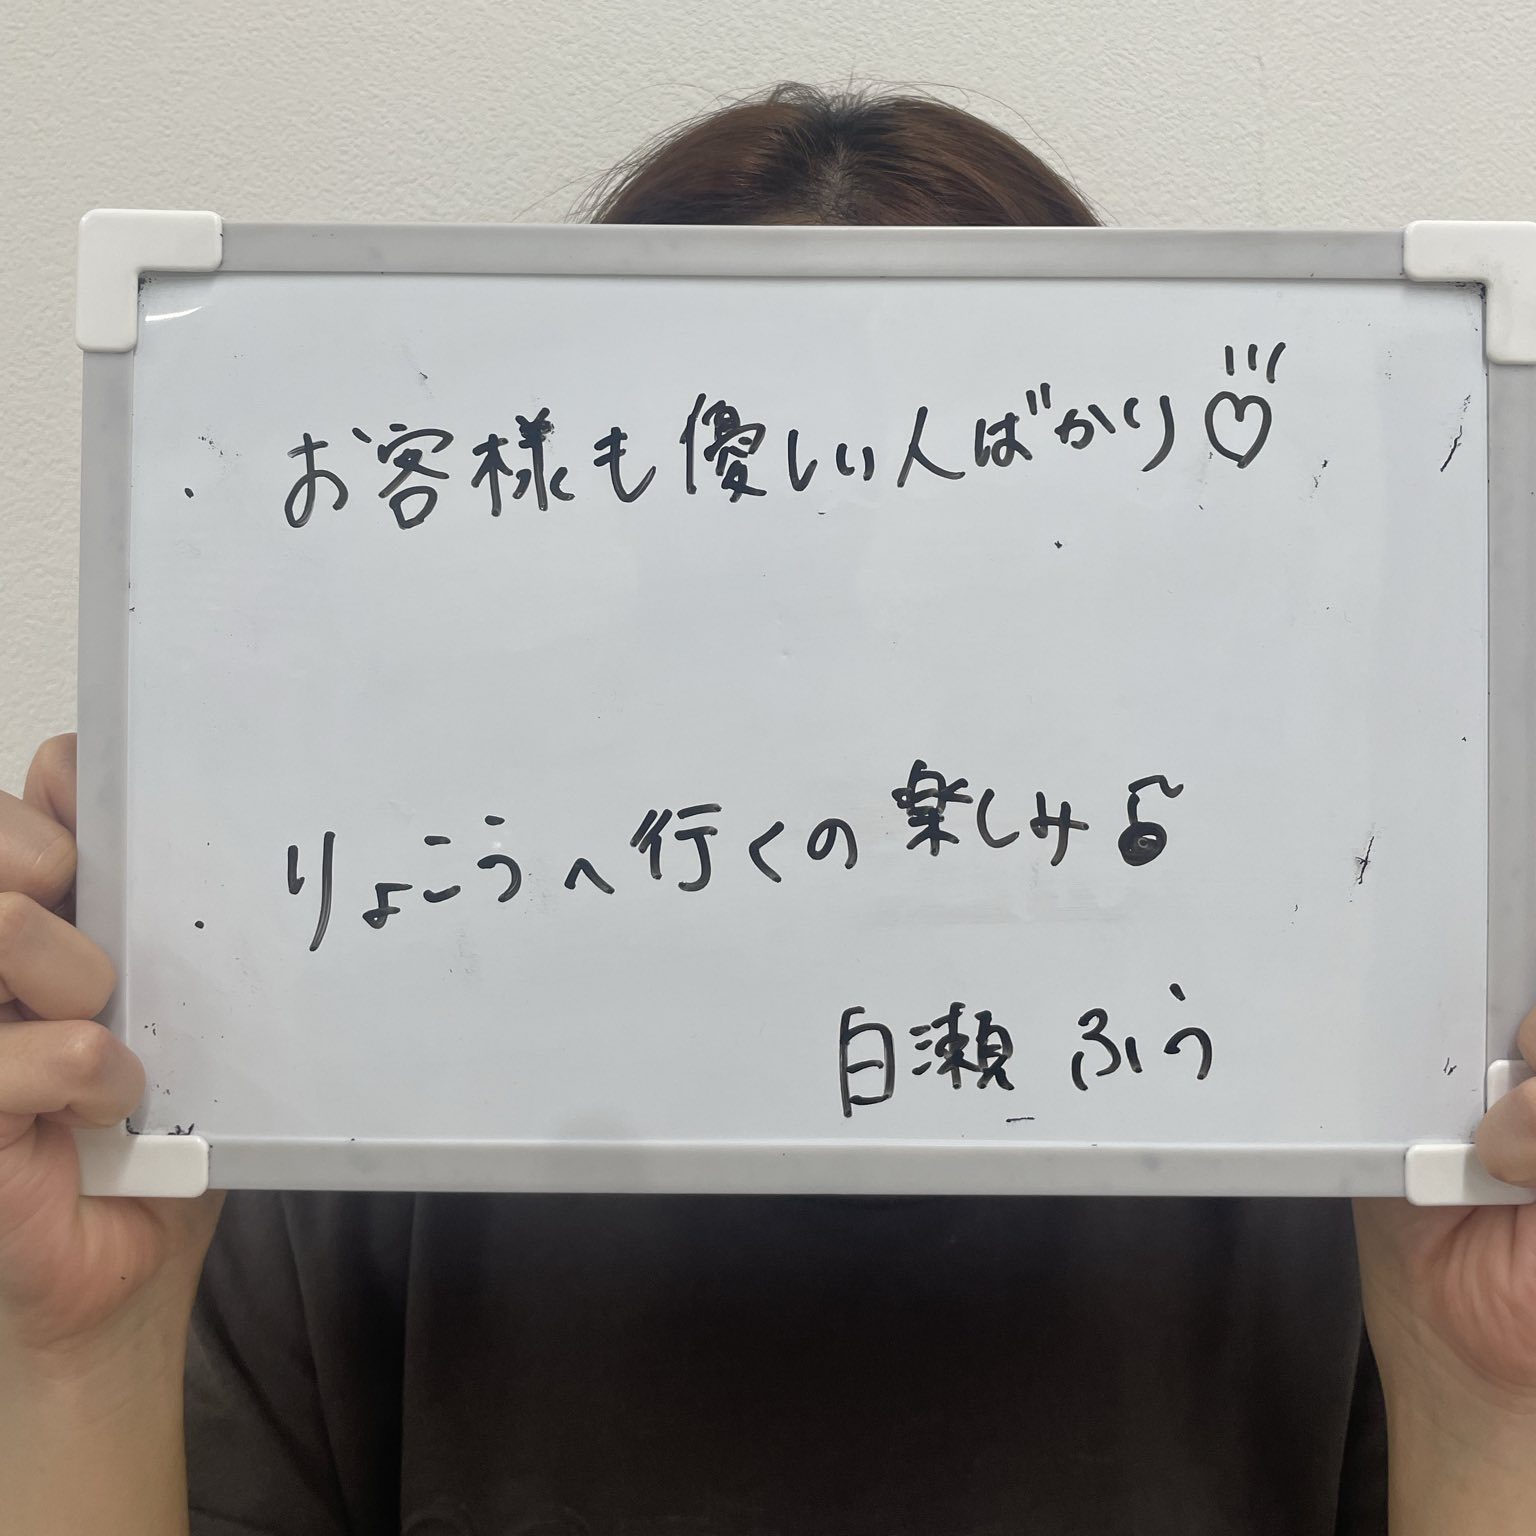 ・お客様も優しい人ばかり♡
・りょこうへ行くの楽しみ♪
白瀬 ふう